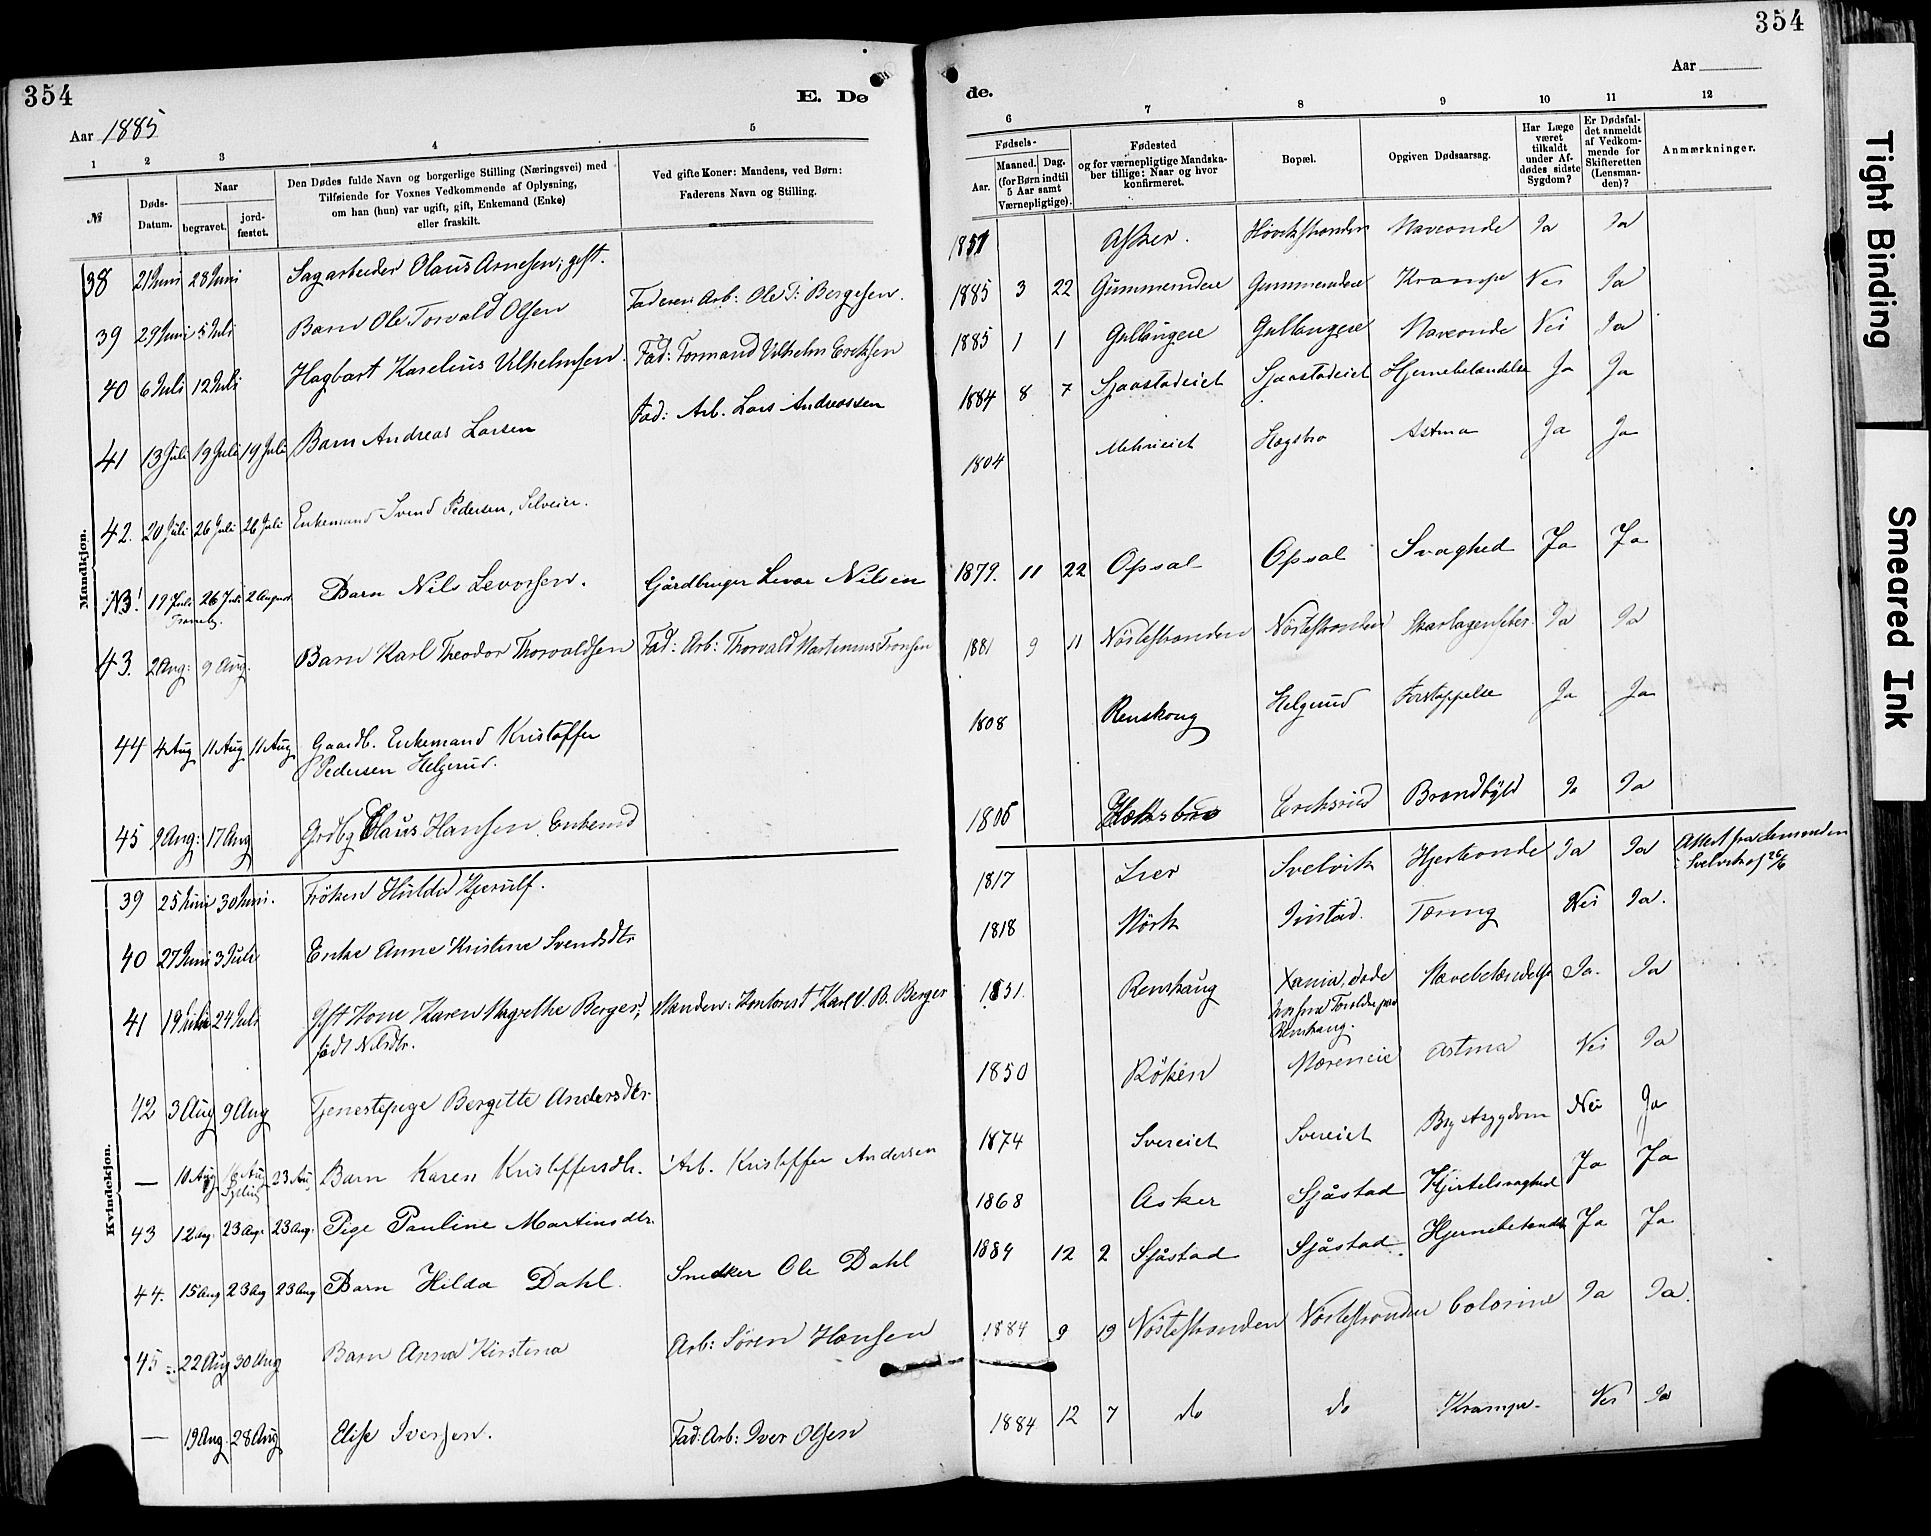 354
E. De
Aar 1885
1 2 3 4 5
№
Døds-
Datum.
Naar
begravet.
jord-
fæstet.
Den Dødes fulde Navn og borgerlige Stilling (Næringsvei) med
Tilføiende for Voxnes Vedkommende af Oplysning,
om han (hun) var ugift, gift, Enkemand (Enke)
eller fraskilt.
Ved gifte Koner: Mandens, ved Børn:
Faderens Navn og Stilling.
Mandkjøn.
38 21 Juni 28 Juni Sagarbeider Olaus Arnesen, gift.
39 29 Juni 5 Juli Barn Ole Torvald Olsen Faderen Arb: Ole T: Bergesen.
40 6 Juli 12 Juli Hagbart Karelius Vilhelmsen. Fad: Tormand Vilhelm Ericksen
41 13 Juli 19 Juli 19 Juli Barn Andreas Larsen Fad: Arb. Lars Andreassen
42. 20 Juli 26 Juli 26 Juli Enkemand Svend Pedersen, Selveier.
N3! 19 Juli 26 Juli 2 August Barn Nils Levorsen. Gårdbruger Levor Nilsen
43. 2 Aug: 9 Aug. Barn Karl Theodor Thorvaldsen Fad: Arb: Thorvald Martinius Fronsen
44 4 Aug 11 Aug 11 Aug Gaardb. Enkemand Kristoffer
Pedersen Helgerud.
45 9 Aug: 17 Aug Grdbg Claus Hansen. Enkemd
Kvindekjøn.
39 25 Juni 30 Juni. Frøken Hulda Kjerulf.
40 27 Juni 3 Juli Enke Anne Kristine Svendsdtr
41 19 Juli 24 Juli Gift Kone Karen Magrethe Berger, Manden: Kontorist Karl V. B. Berger
født Nilsdtr.
42 3 Aug 9 Aug Tjenestepige Bergitte Andersdtr
— 10 Aug 23 Au. Barn Karen Kristoffersdtr. Arb. Kristoffer Andersen
43 12 Aug. 23 Aug. 23 Aug. Pige Pauline Martinsdtr.
44. 15 Aug 23 Aug 23 Aug Barn Hilda Dahl. Snedker Ole Dahl
45 22 Aug 30 Aug Barn Anna Kirstina Arb: Søren Hansen
— 19 Aug. 28 Aug Elise Iversen. Fad: Arb: Iver Olsen
354
de.
Aar
6 7 8 9 10 11 12
Fødsels-
Aar.
Maaned. Dag.
(for Børn indtil
5 Aar samt
Værnepligtige).
Fødested
og for værnepligtige Mandska-
ber tillige: Naar og hvor
konfirmeret.
Bopæl.
Opgiven Dødsaarsag.
Har Læge
været
tilkaldt
under Af-
dødes sidste
Sygdom?
Er Dødsfal-
det anmeldt
af Vedkom-
mende for
Skifteretten
(Lensman-
den)?
Anmærkninger.
1851 Asker. Høvikstranden Maveonde Ja Ja
1885 3 22 Gummerudeie Gummerudeie Krampe Nei Ja
1885 1 1 Gullaugeie Gullaugeie Maveonde Nei Ja
1884 8 7 Sjaastadeiet Sjaastadeiet Hjernebetændelse Ja Ja
1804 Mehrieiet Hagsbro Astma Ja Ja
1879. 11 22 Opsal Opsal Svaghed Ja Ja
1881 9 11 Nøstestranden Nøstestranden Skarlagensfeber. Ja Ja
1808 Renskoug Helgerud Forstoppelse Ja Ja
1806 Ereksrud Brandbyld Ja Ja
1817 Lier Svelvik Hjerteonde Ja Ja Attest fra Lensmanden
i Svelvik af 26/6
1818 Mørk Iinstad. Tæring Nei Ja.
1851. Renskaug Xania, døde Mavebetændelse Ja. Ja
hos sine Forældre paa
Renskaug.
1850 Røken Møreneie Astma Nei Ja
1874 Svereiet Svereiet Brystsygdom Nei Ja
1868 Asker Sjåstad Kjirtelsvaghed Ja Ja
1884 12 2 Sjåstad Sjåstad. Hjernebetænd. Ja Ja
1884 9 19 Nøstestranden Nøstestranden Colorine Ja Ja.
1884 12 7 do do Krampe. Nei Ja
Tight Binding
Smeared Ink